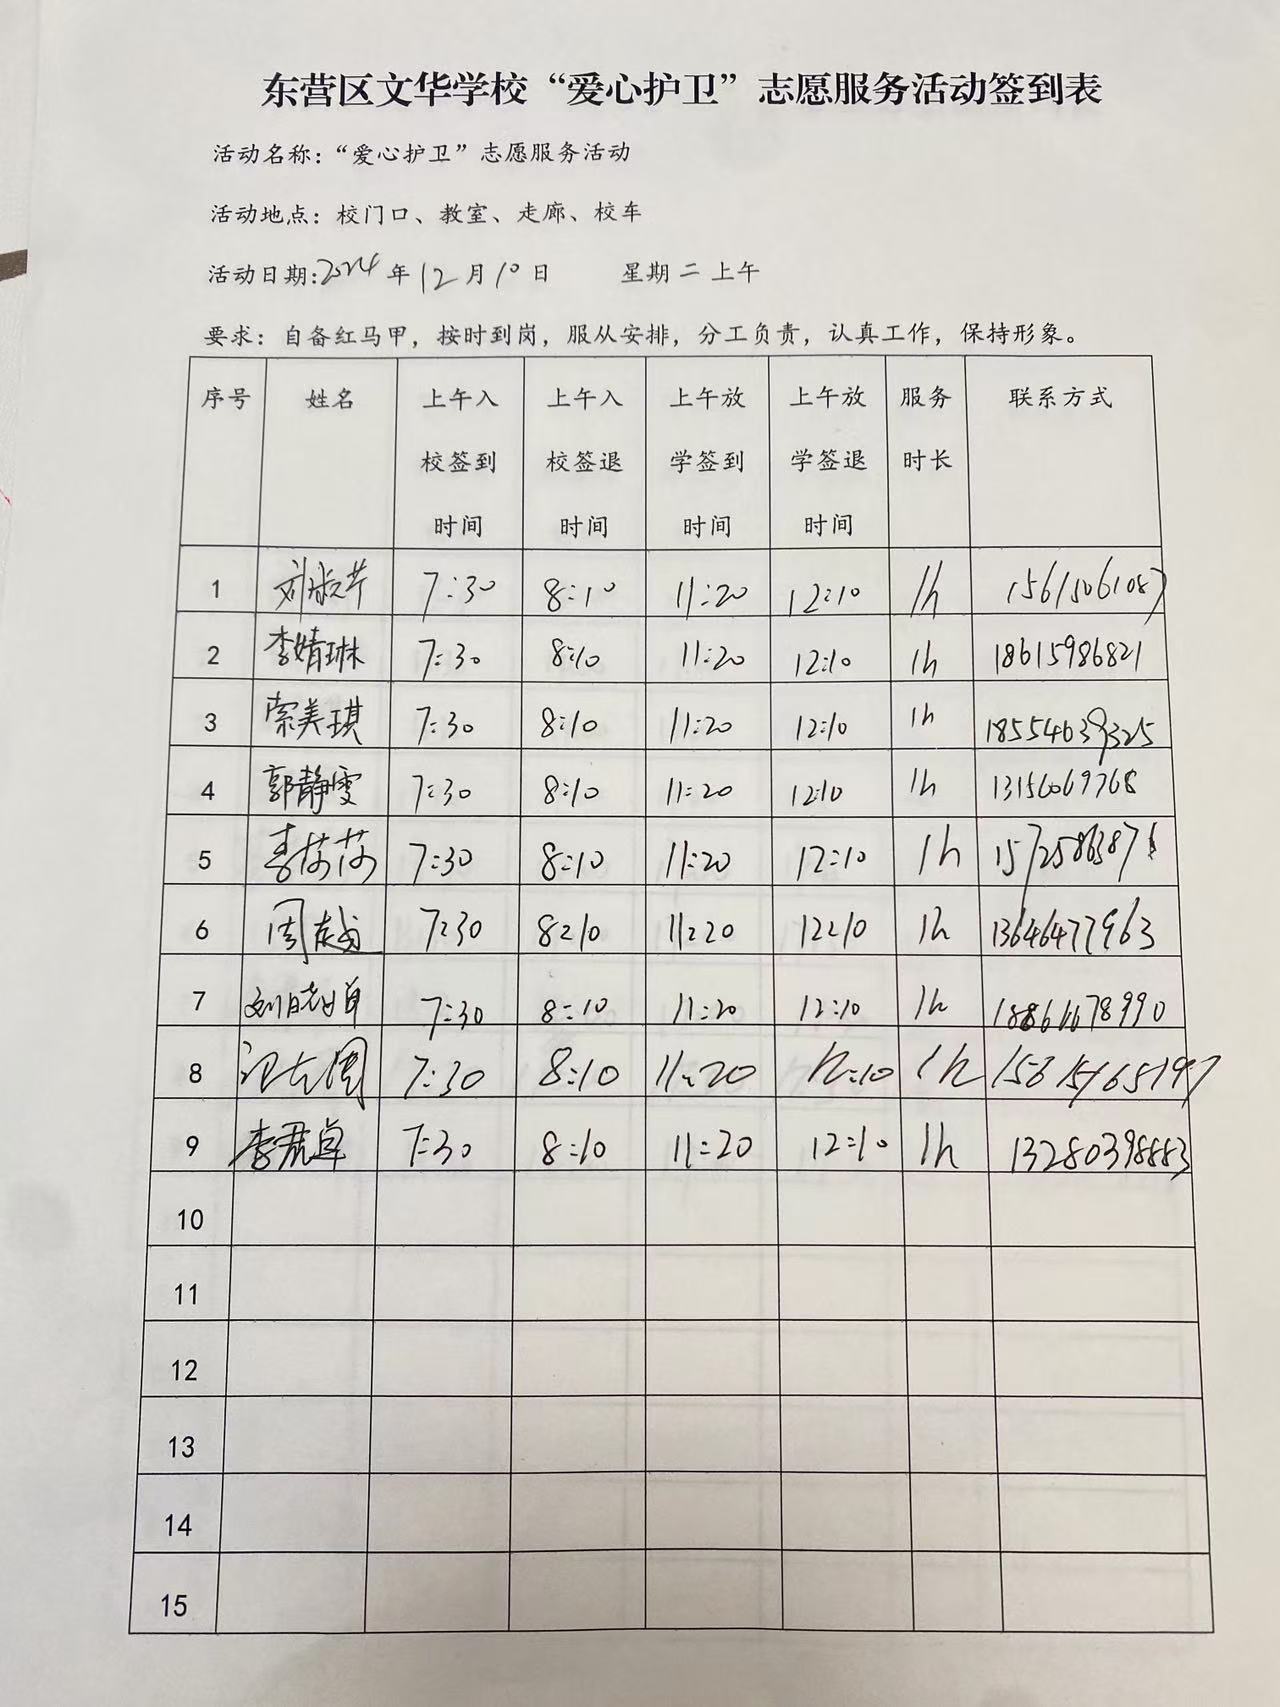 东营区文华学校“爱心护卫”志愿服务活动签到表
活动名称：“爱心护卫”志愿服务活动
活动地点：校门口、教室、走廊、校车
活动日期:2024年12月10日 星期二上午
要求：自备红马甲，按时到岗，服从安排，分工负责，认真工作，保持形象。
序号 姓名 上午入校签到时间 上午入校签退时间 上午放学签到时间 上午放学签退时间 服务时长 联系方式
1 刘淑芹 7:30 8:10 11:20 12:10 1h 15615061087
2 李婧琳 7:30 8:10 11:20 12:10 1h 18615986821
3 索美琪 7:30 8:10 11:20 12:10 1h 18554639325
4 郭静雯 7:30 8:10 11:20 12:10 1h 13156069768
5 李莎莎 7:30 8:10 11:20 12:10 1h
6 周 7:30 8:10 11:20 12:10 1h 13646477963
7 刘晓卓 7:30 8:10 11:20 12:10 1h 18861678990
8 7:30 8:10 11:20 12:10 1h 15615165197
9 李君卓 7:30 8:10 11:20 12:10 1h 13280398883
10
11
12
13
14
15